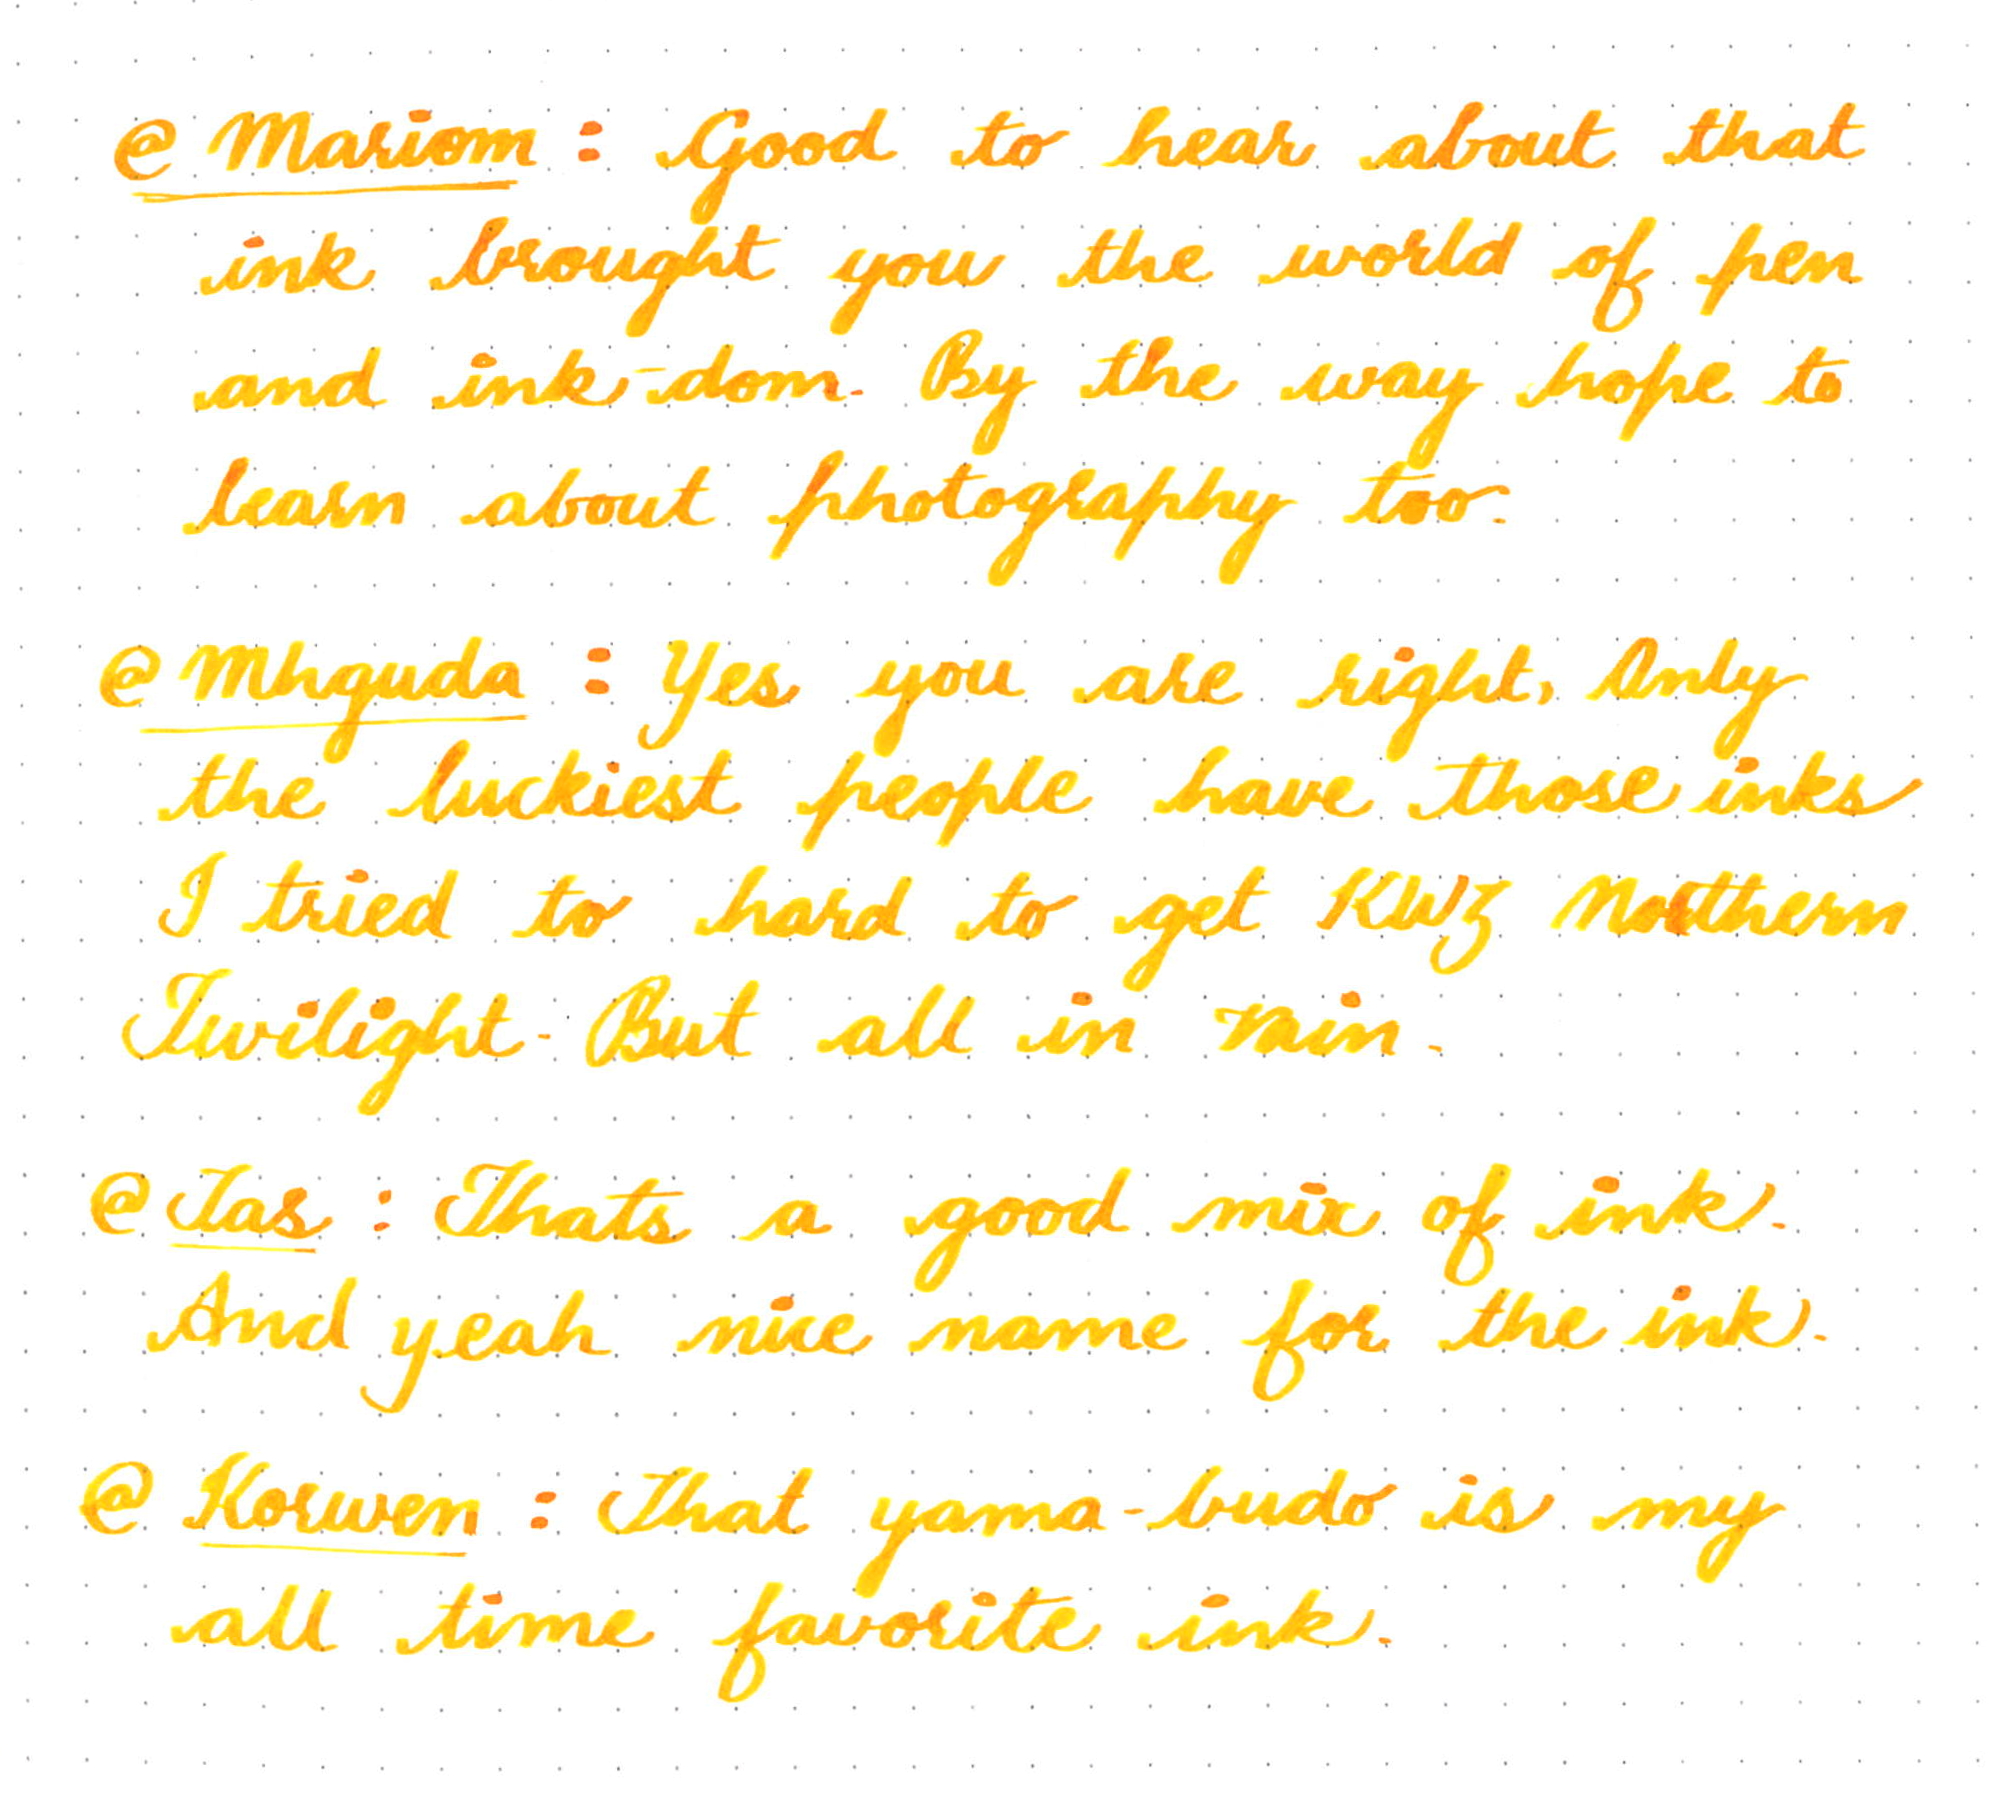 @ Mariom : Good to hear about that
ink brought you the world of pen
and ink-dom. By the way hope to
learn about photography too.
@ Mhguda : Yes you are right, Only
the luckiest people have those inks
I tried to hard to get KWZ Northern
Twilight. But all in vain.
@ Jas : Thats a good mix of ink.
And yeah nice name for the ink.
@ Korwen : That yama-budo is my
all time favorite ink.